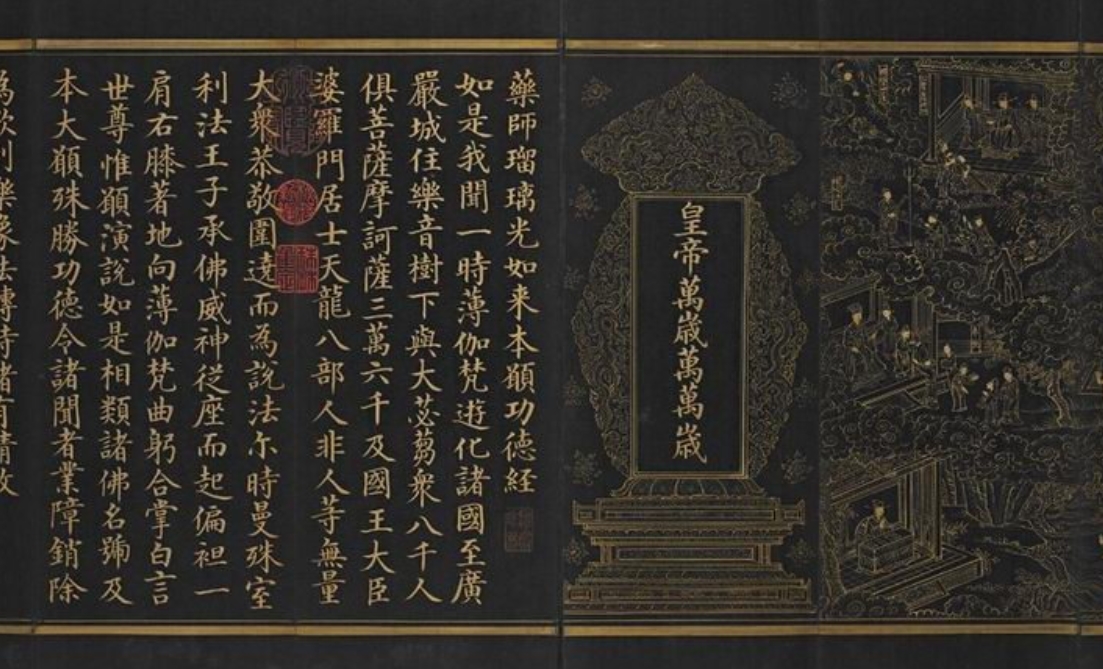 皇帝萬歳萬萬歳
藥師瑠璃光如来本願功德經
如是我聞一時薄伽梵遊化諸國至廣
嚴城住樂音樹下與大苾芻衆八千人
俱菩薩摩訶薩三萬六千及國王大臣
婆羅門居士天龍八部人非人等無量
大衆恭敬圍遶而為說法尒時曼殊室
利法王子承佛威神從座而起偏袒一
肩右膝著地向薄伽梵曲躬合掌白言
世尊惟願演說如是相類諸佛名號及
本大願殊勝功德令諸聞者業障銷除
為欲利樂像法轉時諸有情故